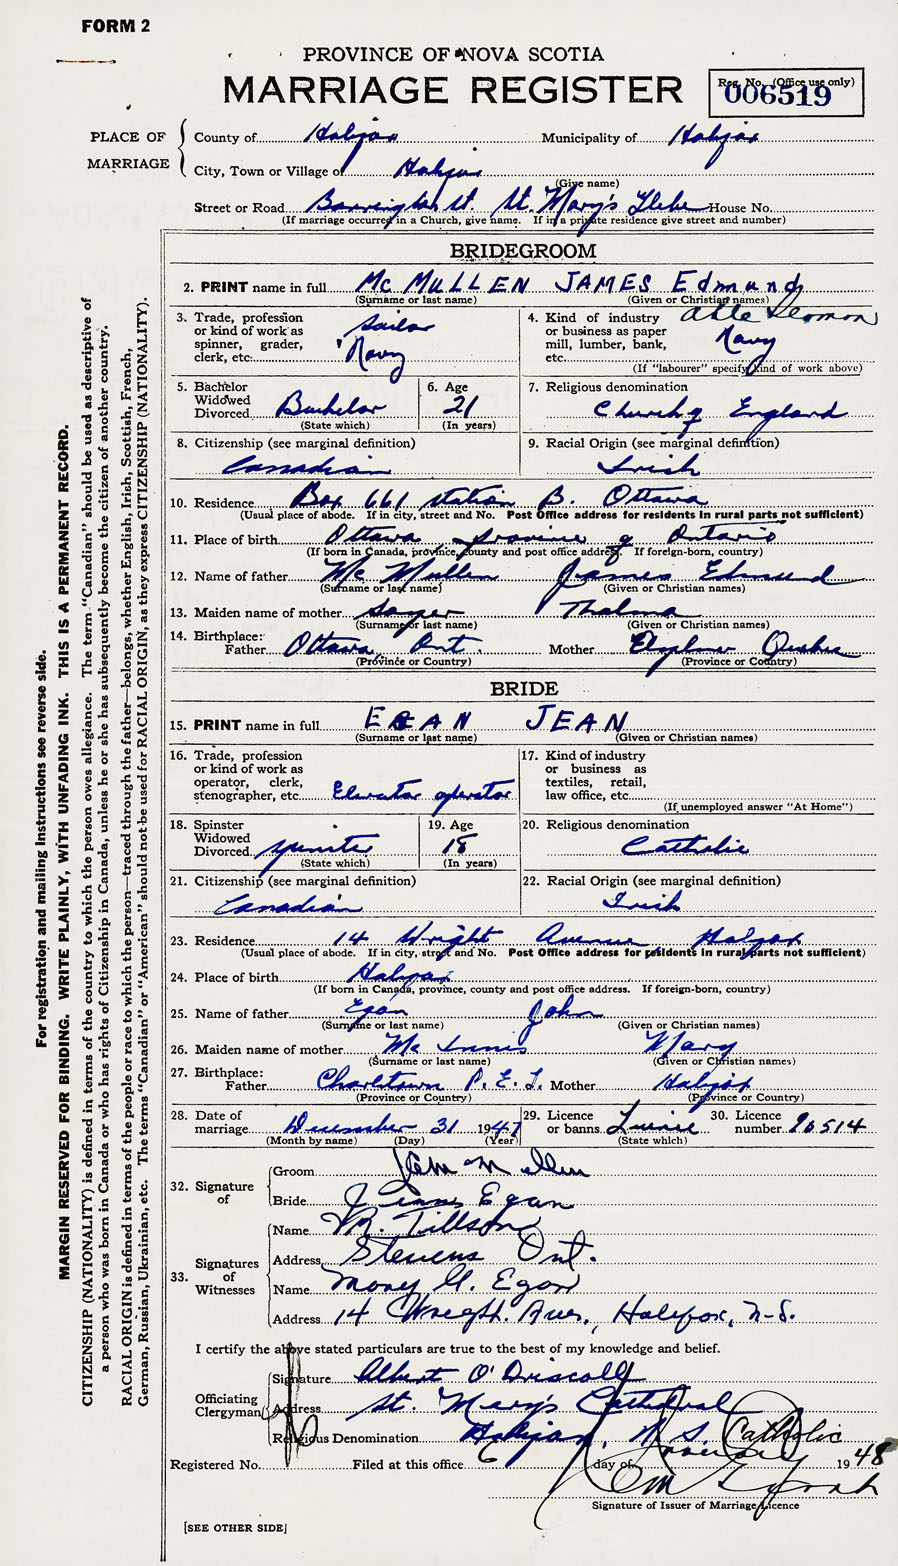 FORM 2
PROVINCE OF NOVA SCOTIA
MARRIAGE REGISTER
Reg. No. (Office use only)
006519
PLACE OF MARRIAGE
County of Halifax Municipality of Halifax
City, Town or Village of Halifax
(Give name)
Street or Road Barrington St. St. Mary's Glebe House No.
(If marriage occurred in a Church, give name. If in a private residence give street and number)
BRIDEGROOM
2. PRINT name in full McMULLEN JAMES Edmund
(Surname or last name) (Given or Christian names)
3. Trade, profession or kind of work as spinner, grader, clerk, etc. Sailor Navy
4. Kind of industry or business as paper mill, lumber, bank, etc. Able Seaman Navy
(If "labourer" specify kind of work above)
5. Bachelor Widowed Divorced Bachelor
(State which)
6. Age 21
(In years)
7. Religious denomination Church of England
8. Citizenship (see marginal definition) Canadian
9. Racial Origin (see marginal definition) Irish
10. Residence Box 661 Station B. Ottawa
(Usual place of abode. If in city, street and No. Post Office address for residents in rural parts not sufficient)
11. Place of birth Ottawa Province of Ontario
(If born in Canada, province, county and post office address. If foreign-born, country)
12. Name of father McMullen James Edmund
(Surname or last name) (Given or Christian names)
13. Maiden name of mother Thelma
(Surname or last name) (Given or Christian names)
14. Birthplace:
Father Ottawa Ont. Mother Quebec
(Province or Country) (Province or Country)
BRIDE
15. PRINT name in full EGAN JEAN
(Surname or last name) (Given or Christian names)
16. Trade, profession or kind of work as operator, clerk, stenographer, etc. Elevator operator
17. Kind of industry or business as textiles, retail, law office, etc.
(If unemployed answer "At Home")
18. Spinster Widowed Divorced Spinster
(State which)
19. Age 18
(In years)
20. Religious denomination Catholic
21. Citizenship (see marginal definition) Canadian
22. Racial Origin (see marginal definition) Irish
23. Residence 14 Wright Avenue Halifax
(Usual place of abode. If in city, street and No. Post Office address for residents in rural parts not sufficient)
24. Place of birth Halifax
(If born in Canada, province, county and post office address. If foreign-born, country)
25. Name of father Egan John
(Surname or last name) (Given or Christian names)
26. Maiden name of mother McInnis Mary
(Surname or last name) (Given or Christian names)
27. Birthplace:
Father Charltown P.E.I. Mother Halifax
(Province or Country) (Province or Country)
28. Date of marriage December 31 1947
(Month by name) (Day) (Year)
29. Licence or banns Licence
(State which)
30. Licence number 90514
32. Signature of
Groom J E McMullen
Bride J Jean Egan
33. Signatures of Witnesses
Name M. Tillson
Address Stevens Ont.
Name Mary G. Egan
Address 14 Wright Ave., Halifax, N-S.
I certify the above stated particulars are true to the best of my knowledge and belief.
Officiating Clergyman
Signature Albert O'Driscoll
Address St. Mary's Cathedral
Religious Denomination Halifax, N.S. Catholic
Registered No. Filed at this office 6 day of January 1948
Signature of Issuer of Marriage Licence
[SEE OTHER SIDE]
For registration and mailing instructions see reverse side.
MARGIN RESERVED FOR BINDING. WRITE PLAINLY, WITH UNFADING INK. THIS IS A PERMANENT RECORD.
CITIZENSHIP (NATIONALITY) is defined in terms of the country to which the person owes allegiance. The term "Canadian" should be used as descriptive of
a person who was born in Canada or who has rights of Citizenship in Canada, unless he or she has subsequently become the citizen of another country.
RACIAL ORIGIN is defined in terms of the people or race to which the person—traced through the father—belongs, whether English, Irish, Scottish, French,
German, Russian, Ukrainian, etc. The terms "Canadian" or "American" should not be used for RACIAL ORIGIN, as they express CITIZENSHIP (NATIONALITY).